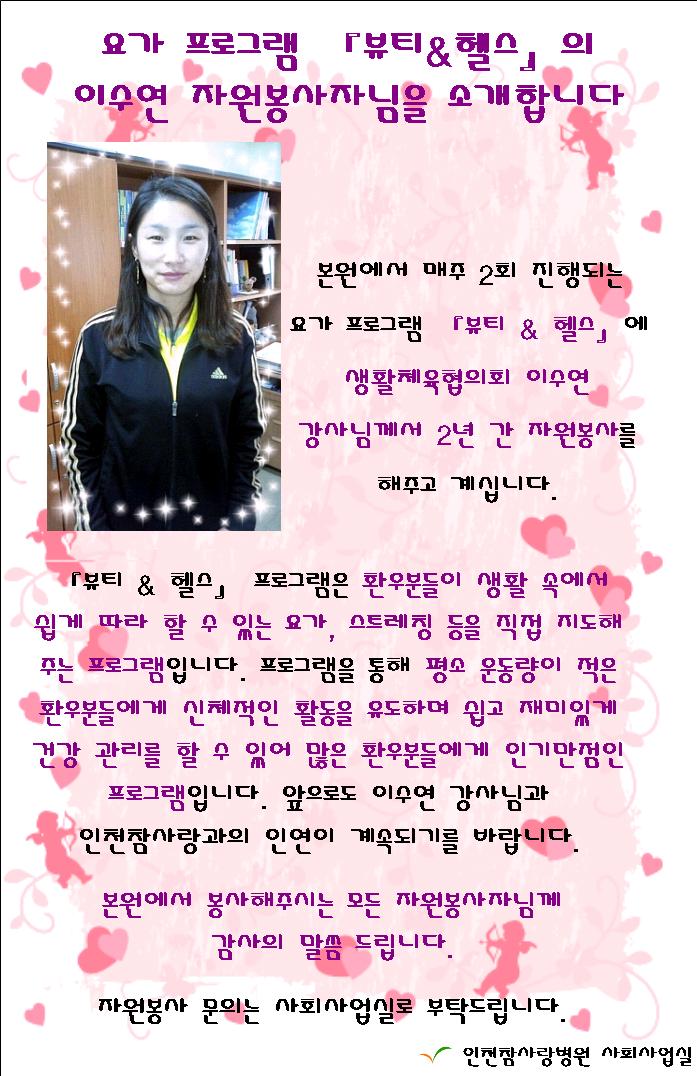 요가 프로그램 『뷰티&헬스』의
이수연 자원봉사자님을 소개합니다
adidas
본원에서 매주 2회 진행되는
요가 프로그램 『뷰티 & 헬스』에
생활체육협의회 이수연
강사님께서 2년 간 자원봉사를
해주고 계십니다.
『뷰티 & 헬스』 프로그램은 환우분들이 생활 속에서
쉽게 따라 할 수 있는 요가, 스트레칭 등을 직접 지도해
주는 프로그램입니다. 프로그램을 통해 평소 운동량이 적은
환우분들에게 신체적인 활동을 유도하며 쉽고 재미있게
건강 관리를 할 수 있어 많은 환우분들에게 인기만점인
프로그램입니다. 앞으로도 이수연 강사님과
인천참사랑과의 인연이 계속되기를 바랍니다.
본원에서 봉사해주시는 모든 자원봉사자님께
감사의 말씀 드립니다.
자원봉사 문의는 사회사업실로 부탁드립니다.
인천참사랑병원 사회사업실